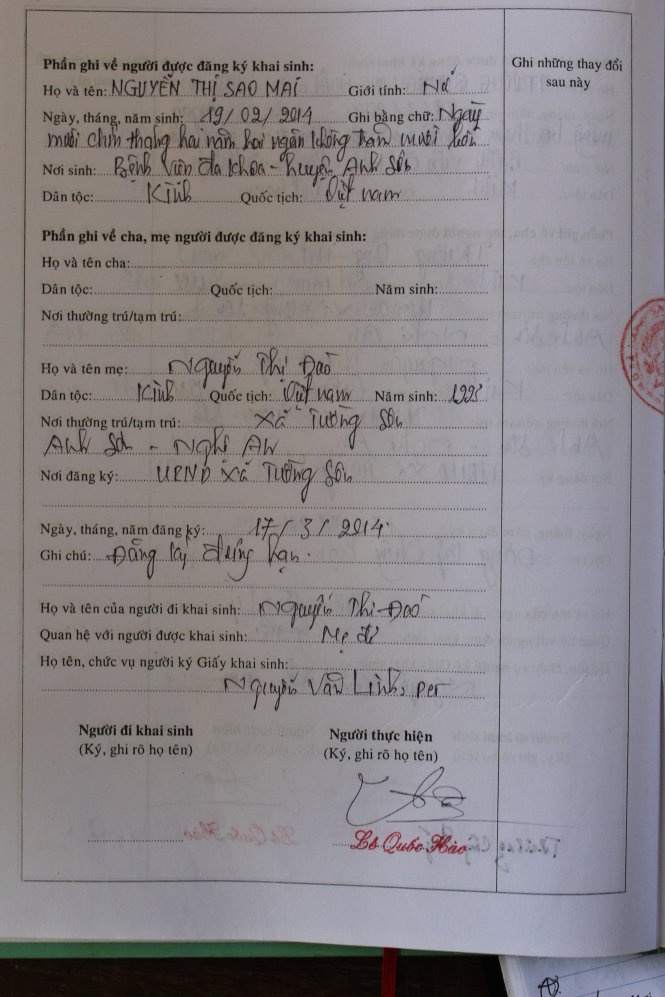 Phần ghi về người được đăng ký khai sinh:
Ghi những thay đổi
sau này
Họ và tên: NGUYỄN THỊ SAO MAI Giới tính: Nữ
Ngày, tháng, năm sinh: 19/02/2014 Ghi bằng chữ: Ngày
mười chín tháng hai năm hai ngàn không trăm mười bốn
Nơi sinh: Bệnh viện đa khoa - huyện Anh Sơn
Dân tộc: Kinh Quốc tịch: Việt nam
Phần ghi về cha, mẹ người được đăng ký khai sinh:
Họ và tên cha:
Dân tộc: Quốc tịch: Năm sinh:
Nơi thường trú/tạm trú:
Họ và tên mẹ: Nguyễn Thị Đào
Dân tộc: Kinh Quốc tịch: Việt nam Năm sinh:
Nơi thường trú/tạm trú: Xã Tường Sơn
Anh Sơn - Nghệ An
Nơi đăng ký: UBND xã Tường Sơn
Ngày, tháng, năm đăng ký: 17/3/2014
Ghi chú: Đăng ký đúng hạn.
Họ và tên của người đi khai sinh: Nguyễn Thị Đào
Quan hệ với người được khai sinh: Mẹ đẻ
Họ tên, chức vụ người ký Giấy khai sinh:
Nguyễn Văn Linh,
Người đi khai sinh
(Ký, ghi rõ họ tên)
Người thực hiện
(Ký, ghi rõ họ tên)
Hào